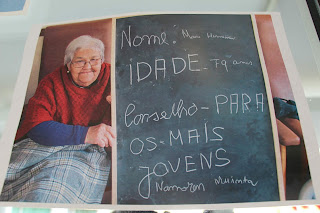 Nome: Maria
IDADE - 79 anos
Conselho - PARA
OS - MAIS
JOVENS
Namorem Muinto